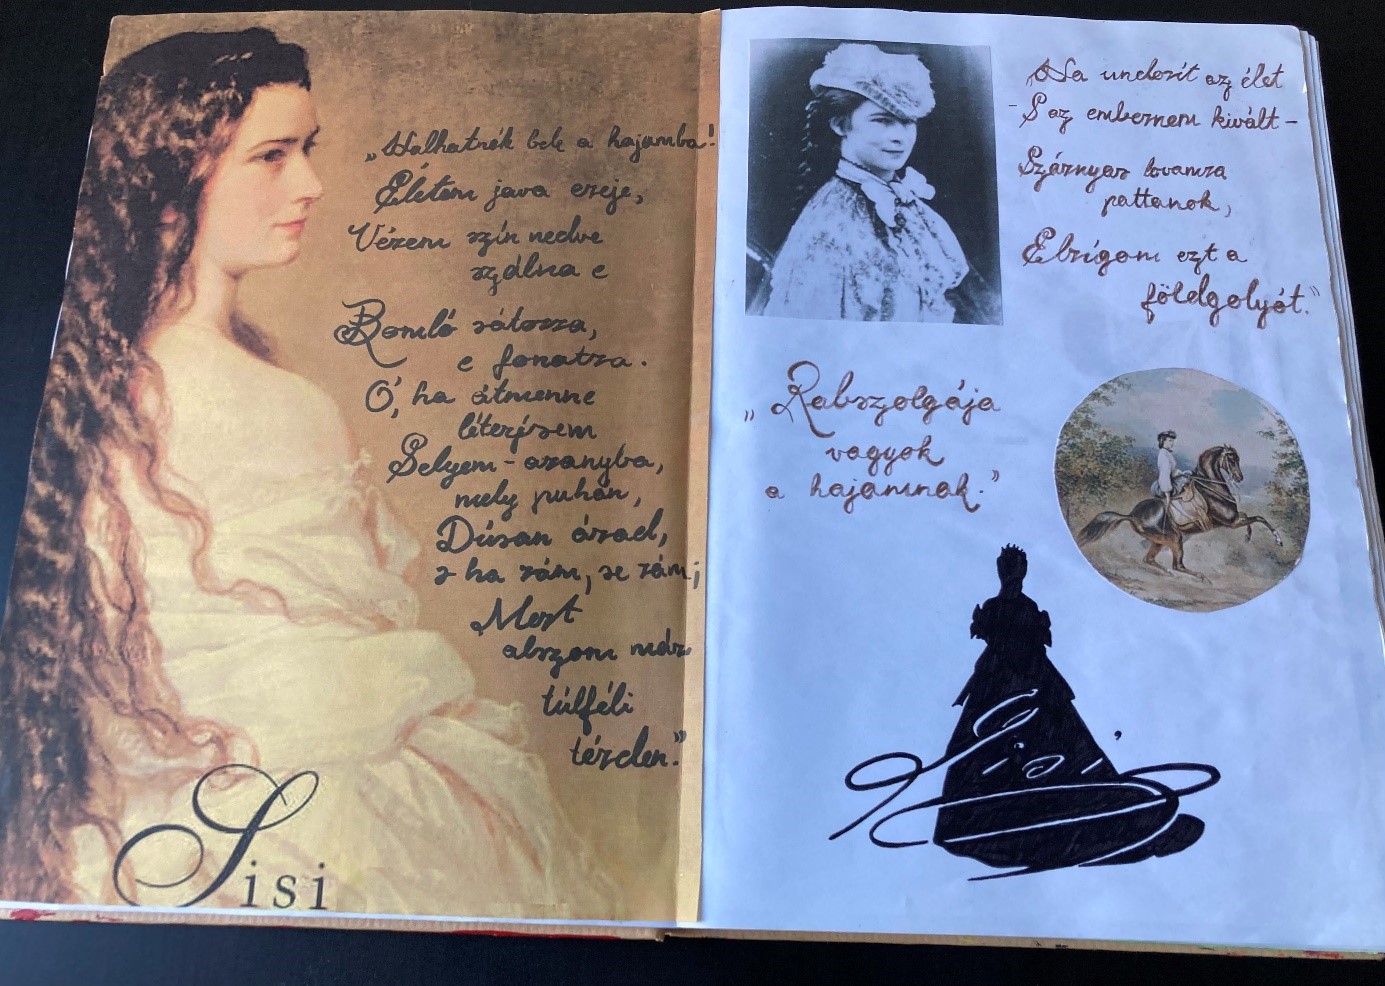 „Halhatnék bele a hajamba!
Életem java ereje,
Vérem szín nedve
szállna e
Bomló sátorra,
e fonatra.
Ó, ha átmenne
létezésem
Selyem-aranyba,
mely puhán,
Dúsan árad,
s ha rám, se rám;
Mert
alszom már
túlféli
térden."
Sisi
„Ha undorít az élet
- S az embernem kivált -
Szárnyas lovamra
pattanok,
Elrúgom ezt a
földgolyót."
„Rabszolgája
vagyok
a hajamnak."
Sisi